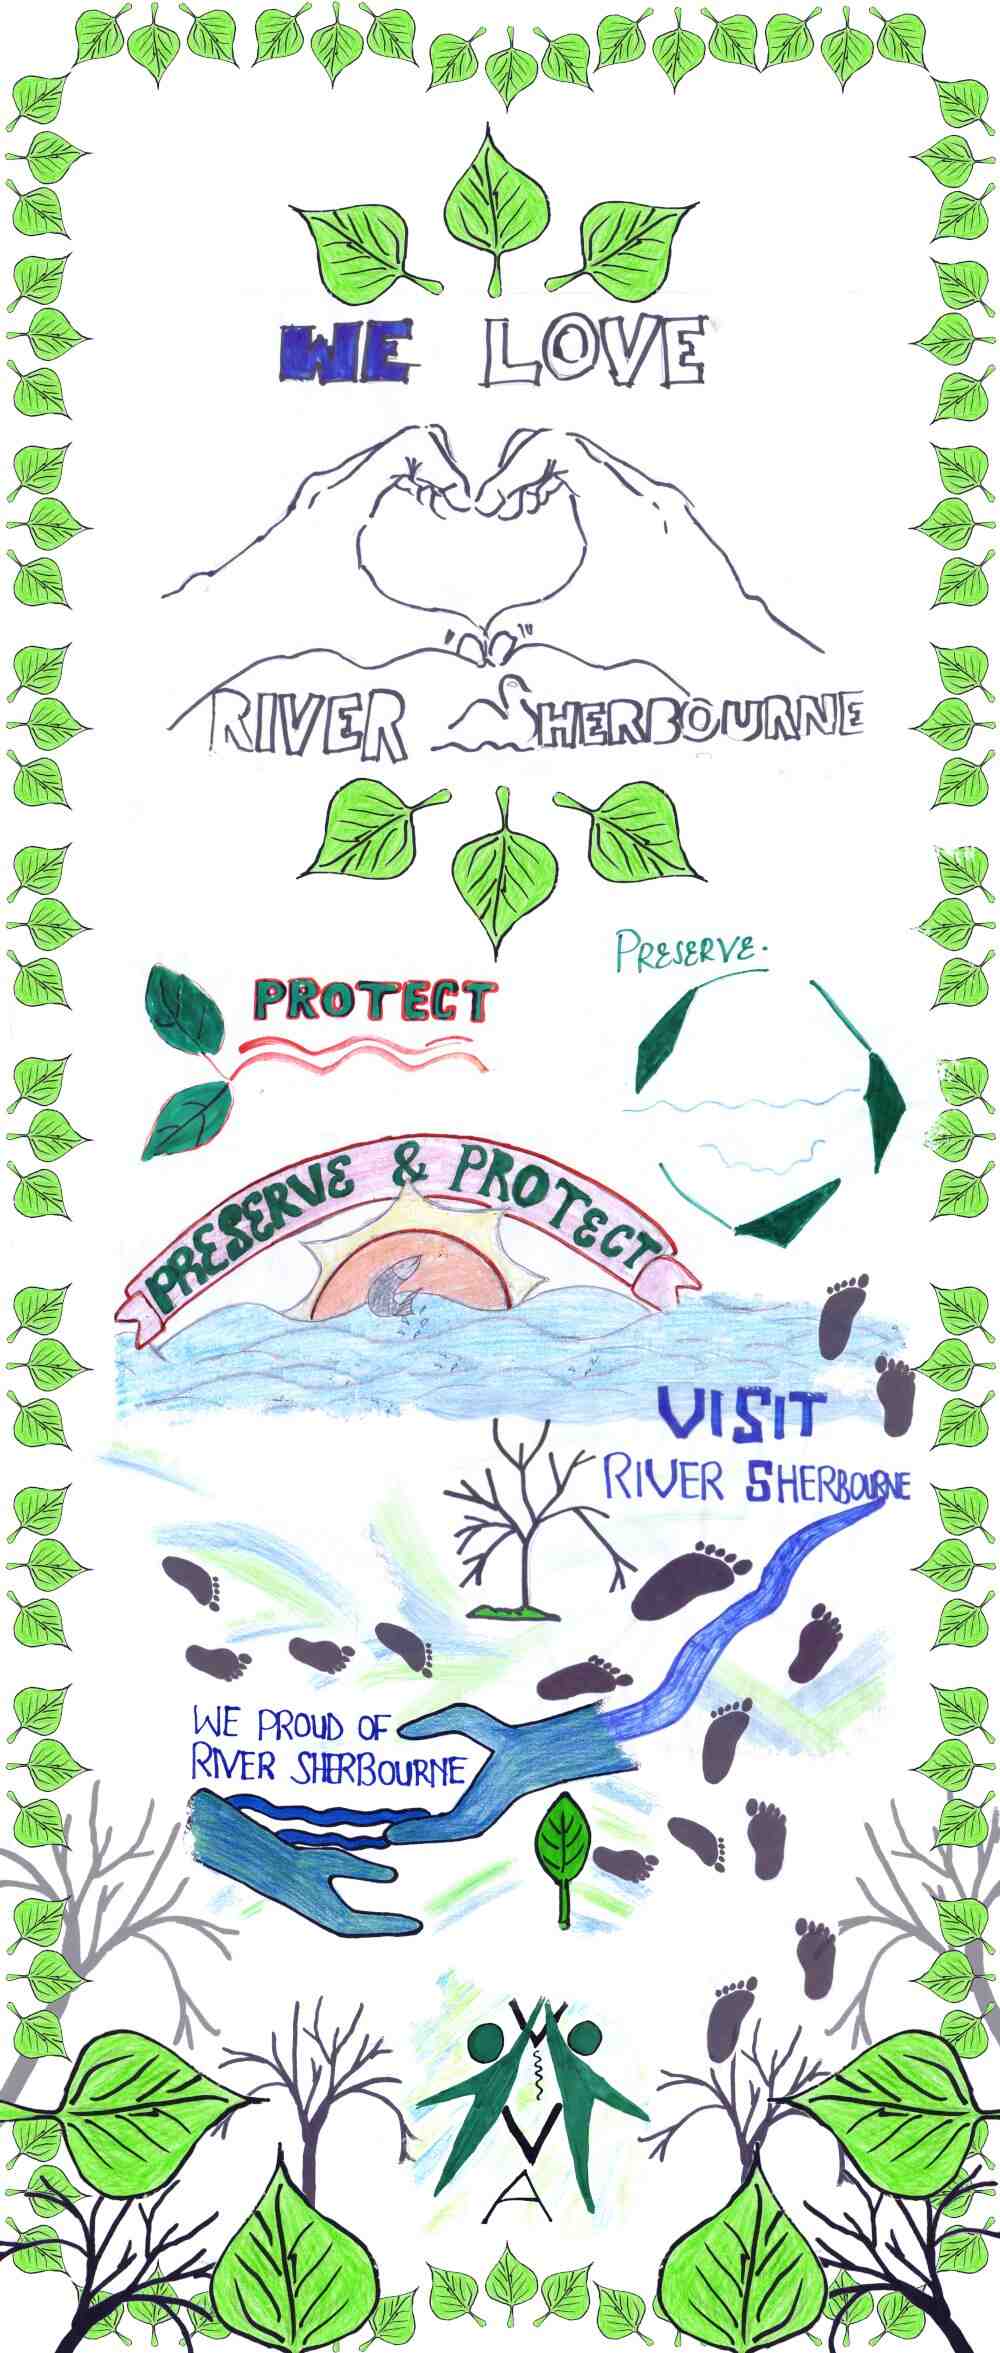 WE LOVE
RIVER SHERBOURNE
PRESERVE.
PROTECT
PRESERVE & PROTECT
VISIT
RIVER SHERBOURNE
WE PROUD OF
RIVER SHERBOURNE
V
V
A